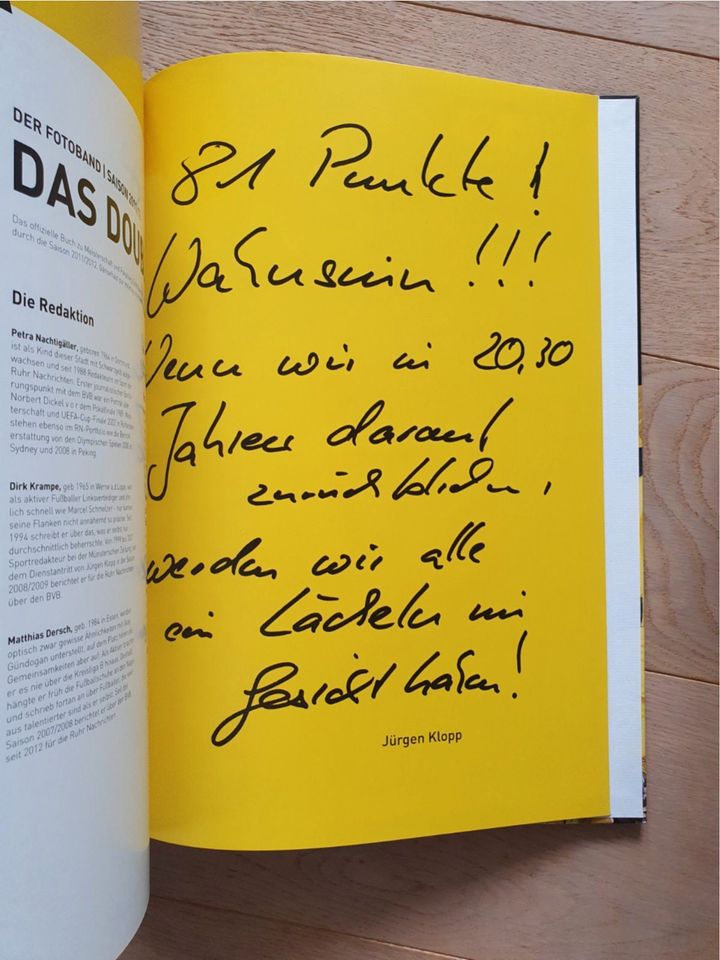 DER FOTOBAND | SAISON
DAS DOUB
Das offizielle Buch zu Meisterschaft und
durch die Saison 2011/2012.
Die Redaktion
Petra Nachtigäller, geboren 1964 in Dortmund,
ist als Kind dieser Stadt mit Schwarzgelb
wachsen und seit 1988 Redakteurin im Sport der
Ruhr Nachrichten. Erster journalistischer
rungspunkt mit dem BVB war ein Porträt über
Norbert Dickel vor dem Pokalfinale 1989.
terschaft und UEFA-Cup-Finale 2002 in Rotterdam
stehen ebenso im RN-Portfolio wie die Bericht-
erstattung von den Olympischen Spielen 2000 in
Sydney und 2008 in Peking.
Dirk Krampe, geb. 1965 in Werne a.d. Lippe, war
als aktiver Fußballer Linksverteidiger und
lich schnell wie Marcel Schmelzer - nur kamen
seine Flanken nicht annähernd so präzise. Seit
1994 schreibt er über das, was er selbst nur
durchschnittlich beherrschte. Von 1999 bis
Sportredakteur bei der Münsterschen Zeitung, seit
dem Dienstantritt von Jürgen Klopp in der Saison
2008/2009 berichtet er für die Ruhr Nachrichten
über den BVB.
Matthias Dersch, geb. 1984 in Essen, werden
optisch zwar gewisse Ähnlichkeiten mit Ilkay
Gündogan unterstellt, auf dem Platz hören die
Gemeinsamkeiten aber auf: Als Aktiver
er es nie über die Kreisliga B hinaus. Deshalb
hängte er früh die Fußballschuhe an den Nagel
und schrieb fortan an über Fußballer, die
aus talentierter sind als er selbst. Seit der
Saison 2007/2008 berichtet er über den BVB,
seit 2012 für die Ruhr Nachrichten.
81 Punkte!
Wahnsinn!!!
Wenn wir in 20,30
Jahren darauf
zurückblicken,
werden wir alle
ein Lächeln im
Gesicht haben!
Jürgen Klopp